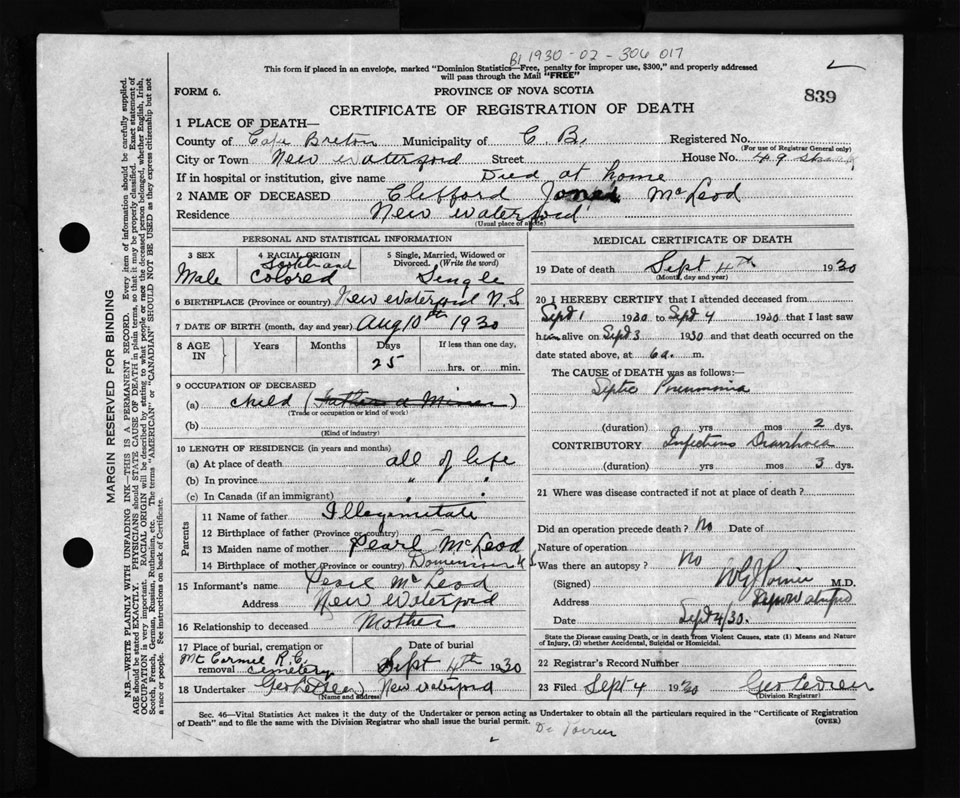 B1 1930-02-306 017
This form if placed in an envelope, marked "Dominion Statistics—Free, penalty for improper use, $300," and properly addressed
will pass through the Mail "FREE"
FORM 6.
PROVINCE OF NOVA SCOTIA
839
CERTIFICATE OF REGISTRATION OF DEATH
1 PLACE OF DEATH—
County of Cape Breton Municipality of C. B. Registered No.
(For use of Registrar General only)
City or Town New Waterford Street House No. 49
If in hospital or institution, give name Died at home
2 NAME OF DECEASED Clifford McLeod
Residence New Waterford
(Usual place of abode)
PERSONAL AND STATISTICAL INFORMATION
3 SEX Male
4 RACIAL ORIGIN Scotch and Colored
5 Single, Married, Widowed or Divorced. (Write the word) Single
6 BIRTHPLACE (Province or country) New Waterford N.S.
7 DATE OF BIRTH (month, day and year) Aug 10th 1930
8 AGE IN Years Months Days 25 If less than one day, hrs. or min.
9 OCCUPATION OF DECEASED
(a) Child (Father a Miner)
(Trade or occupation or kind of work)
(b)
(Kind of industry)
10 LENGTH OF RESIDENCE (in years and months)
(a) At place of death all of life
(b) In province " "
(c) In Canada (if an immigrant) " "
Parents
11 Name of father Illegimitate
12 Birthplace of father (Province or country)
13 Maiden name of mother Pearl McLeod
14 Birthplace of mother (Province or country) Dominion
15 Informant's name Pearl McLeod
Address New Waterford
16 Relationship to deceased Mother
17 Place of burial, cremation or removal Mt Carmel R.C. Cemetery
Date of burial Sept 4th 1930
18 Undertaker New Waterford
(Name and address)
MEDICAL CERTIFICATE OF DEATH
19 Date of death Sept 4th 1930
(Month, day and year)
20 I HEREBY CERTIFY that I attended deceased from
Sept 1 1930 to Sept 4 1930 that I last saw
him alive on Sept 3 1930 and that death occurred on the
date stated above, at 6 a. m.
The CAUSE of DEATH was as follows:—
Septic Pneumonia
(duration) yrs mos 2 dys.
CONTRIBUTORY Infectious Diarrhoea
(duration) yrs mos 3 dys.
21 Where was disease contracted if not at place of death?
Did an operation precede death? No Date of
Nature of operation
Was there an autopsy? No
(Signed) M.D.
Address New Waterford
Date Sept 4/30.
State the Disease causing Death, or in death from Violent Causes, state (1) Means and Nature
of Injury, (2) whether Accidental, Suicidal or Homicidal.
22 Registrar's Record Number
23 Filed Sept 4 1930
(Division Registrar)
Sec. 46—Vital Statistics Act makes it the duty of the Undertaker or person acting as Undertaker to obtain all the particulars required in the "Certificate of Registration
of Death" and to file the same with the Division Registrar who shall issue the burial permit.
(OVER)
Dr Poirier
MARGIN RESERVED FOR BINDING
N.B.—WRITE PLAINLY WITH UNFADING INK—THIS IS A PERMANENT RECORD. Every item of information should be carefully supplied.
AGE should be stated EXACTLY. PHYSICIANS should STATE CAUSE OF DEATH in plain terms, so that it may be properly classified. Exact statement of
OCCUPATION is very important. RACIAL ORIGIN will be described by stating to what people or race the deceased person belonged, whether English, Irish,
Scotch, French, German, Russian, Ruthenian, etc. The terms "AMERICAN" or "CANADIAN" SHOULD NOT BE USED as they express citizenship but not
a race or people. See instructions on back of Certificate.